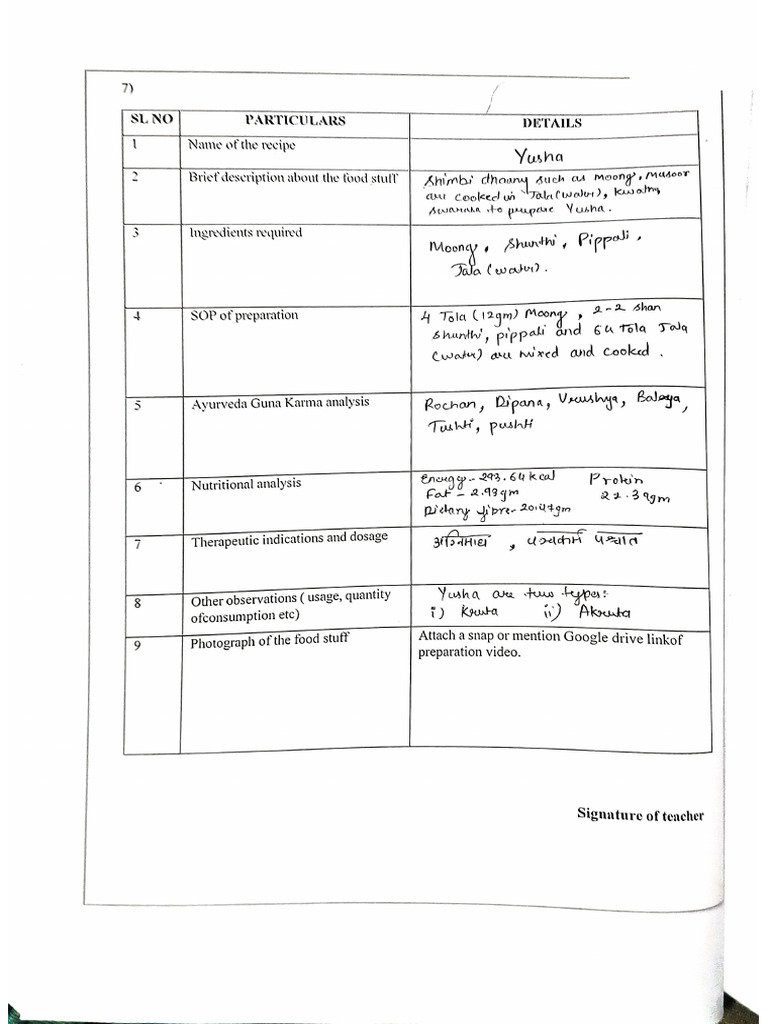 7)
SL NO PARTICULARS DETAILS
1 Name of the recipe Yusha
2 Brief description about the food stuff Shimbi dhaany such as Moong, Masoor
are cooked in Jala (water), kwath,
to prepare Yusha.
3 Ingredients required Moong, Shunthi, Pippali,
Jala (water).
4 SOP of preparation 4 Tola (12gm) Moong, 2-2 Shan
Shunthi, pippali and 64 Tola Jala
(water) are mixed and cooked.
5 Ayurveda Guna Karma analysis Rochan, Dipana, Vrushya, Balaya,
Tushti, pushti
6 Nutritional analysis Energy - 293.64 kcal Protein
Fat - 2.93gm 22.39gm
Dietary fibre - 20.47gm
7 Therapeutic indications and dosage अग्निमांद्य, पश्चात
8 Other observations ( usage, quantity Yusha are two types:
ofconsumption etc) i) Kruta ii) Akruta
9 Photograph of the food stuff Attach a snap or mention Google drive linkof
preparation video.
Signature of teacher